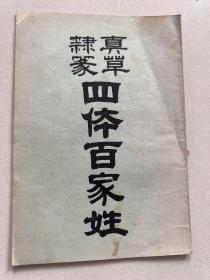 真草
隸篆
四体百家姓